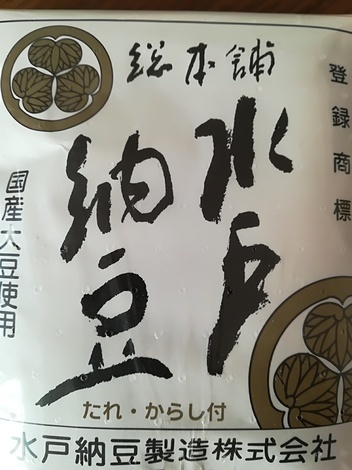 総本舗
登録商標
水戸
納豆
国産大豆使用
たれ・からし付
水戸納豆製造株式会社